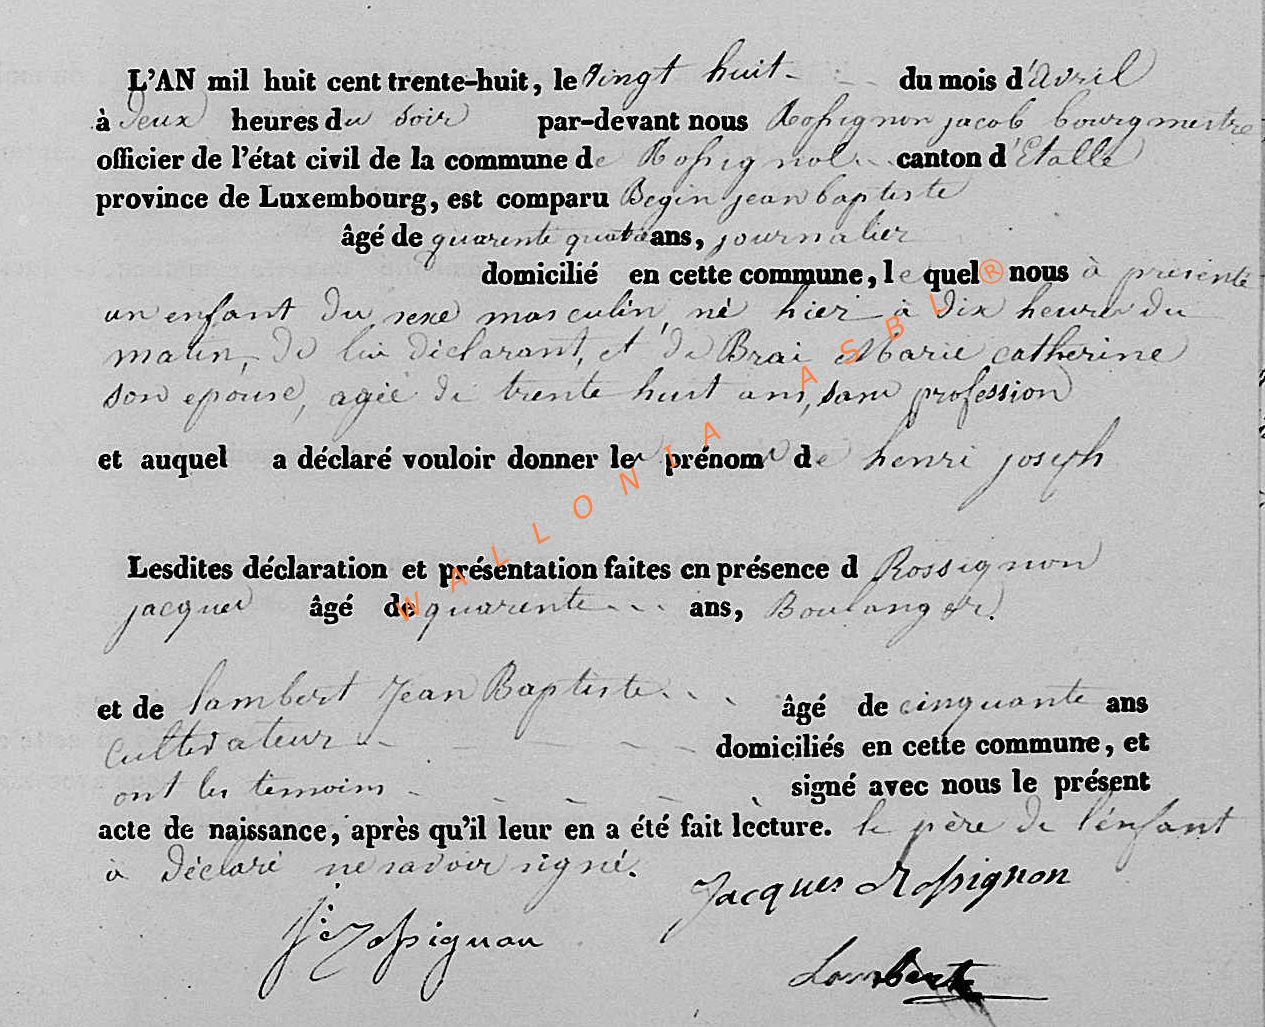 L'AN mil huit cent trente-huit, le vingt huit du mois d'avril
à deux heures du soir par-devant nous Rossignon jacob bourgmestre
officier de l'état civil de la commune de Rossignol canton d'Etalle
province de Luxembourg, est comparu Begin jean baptiste
âgé de quarente quatre ans, journalier
domicilié en cette commune, le quel nous à présenté
un enfant du sexe masculin, né hier à dix heures du
matin, de lui déclarant, et de Brai Marie catherine
son epouse, agée de trente huit ans, sans profession
et auquel a déclaré vouloir donner les prénoms de henri joseph
Lesdites déclaration et présentation faites en présence d Rossignon
jacques âgé de quarente ans, Boulanger.
et de lambert Jean Baptiste âgé de cinquante ans
cultivateur domiciliés en cette commune, et
ont les temoins signé avec nous le présent
acte de naissance, après qu'il leur en a été fait lecture. le père de l'énfant
à déclaré ne savoir signé.
Jacques Rossignon
Rossignon
Lambert
WALLONIA ASBL ®